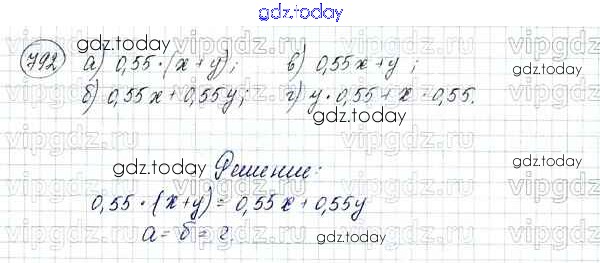 gdz.today
792 а) 0,55·(x+y); в) 0,55x+y;
б) 0,55x+0,55y; г) y·0,55+x·0,55.
Решение:
0,55·(x+y)=0,55x+0,55y
а=б=г.
gdz.today
gdz.today
gdz.today
gdz.today
gdz.today
gdz.today
vipgdz.ru
vipgdz.ru
vipgdz.ru
vipgdz.ru